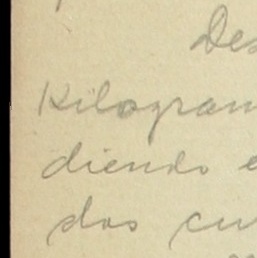 Des
Kilogram
diendo e
dos cu